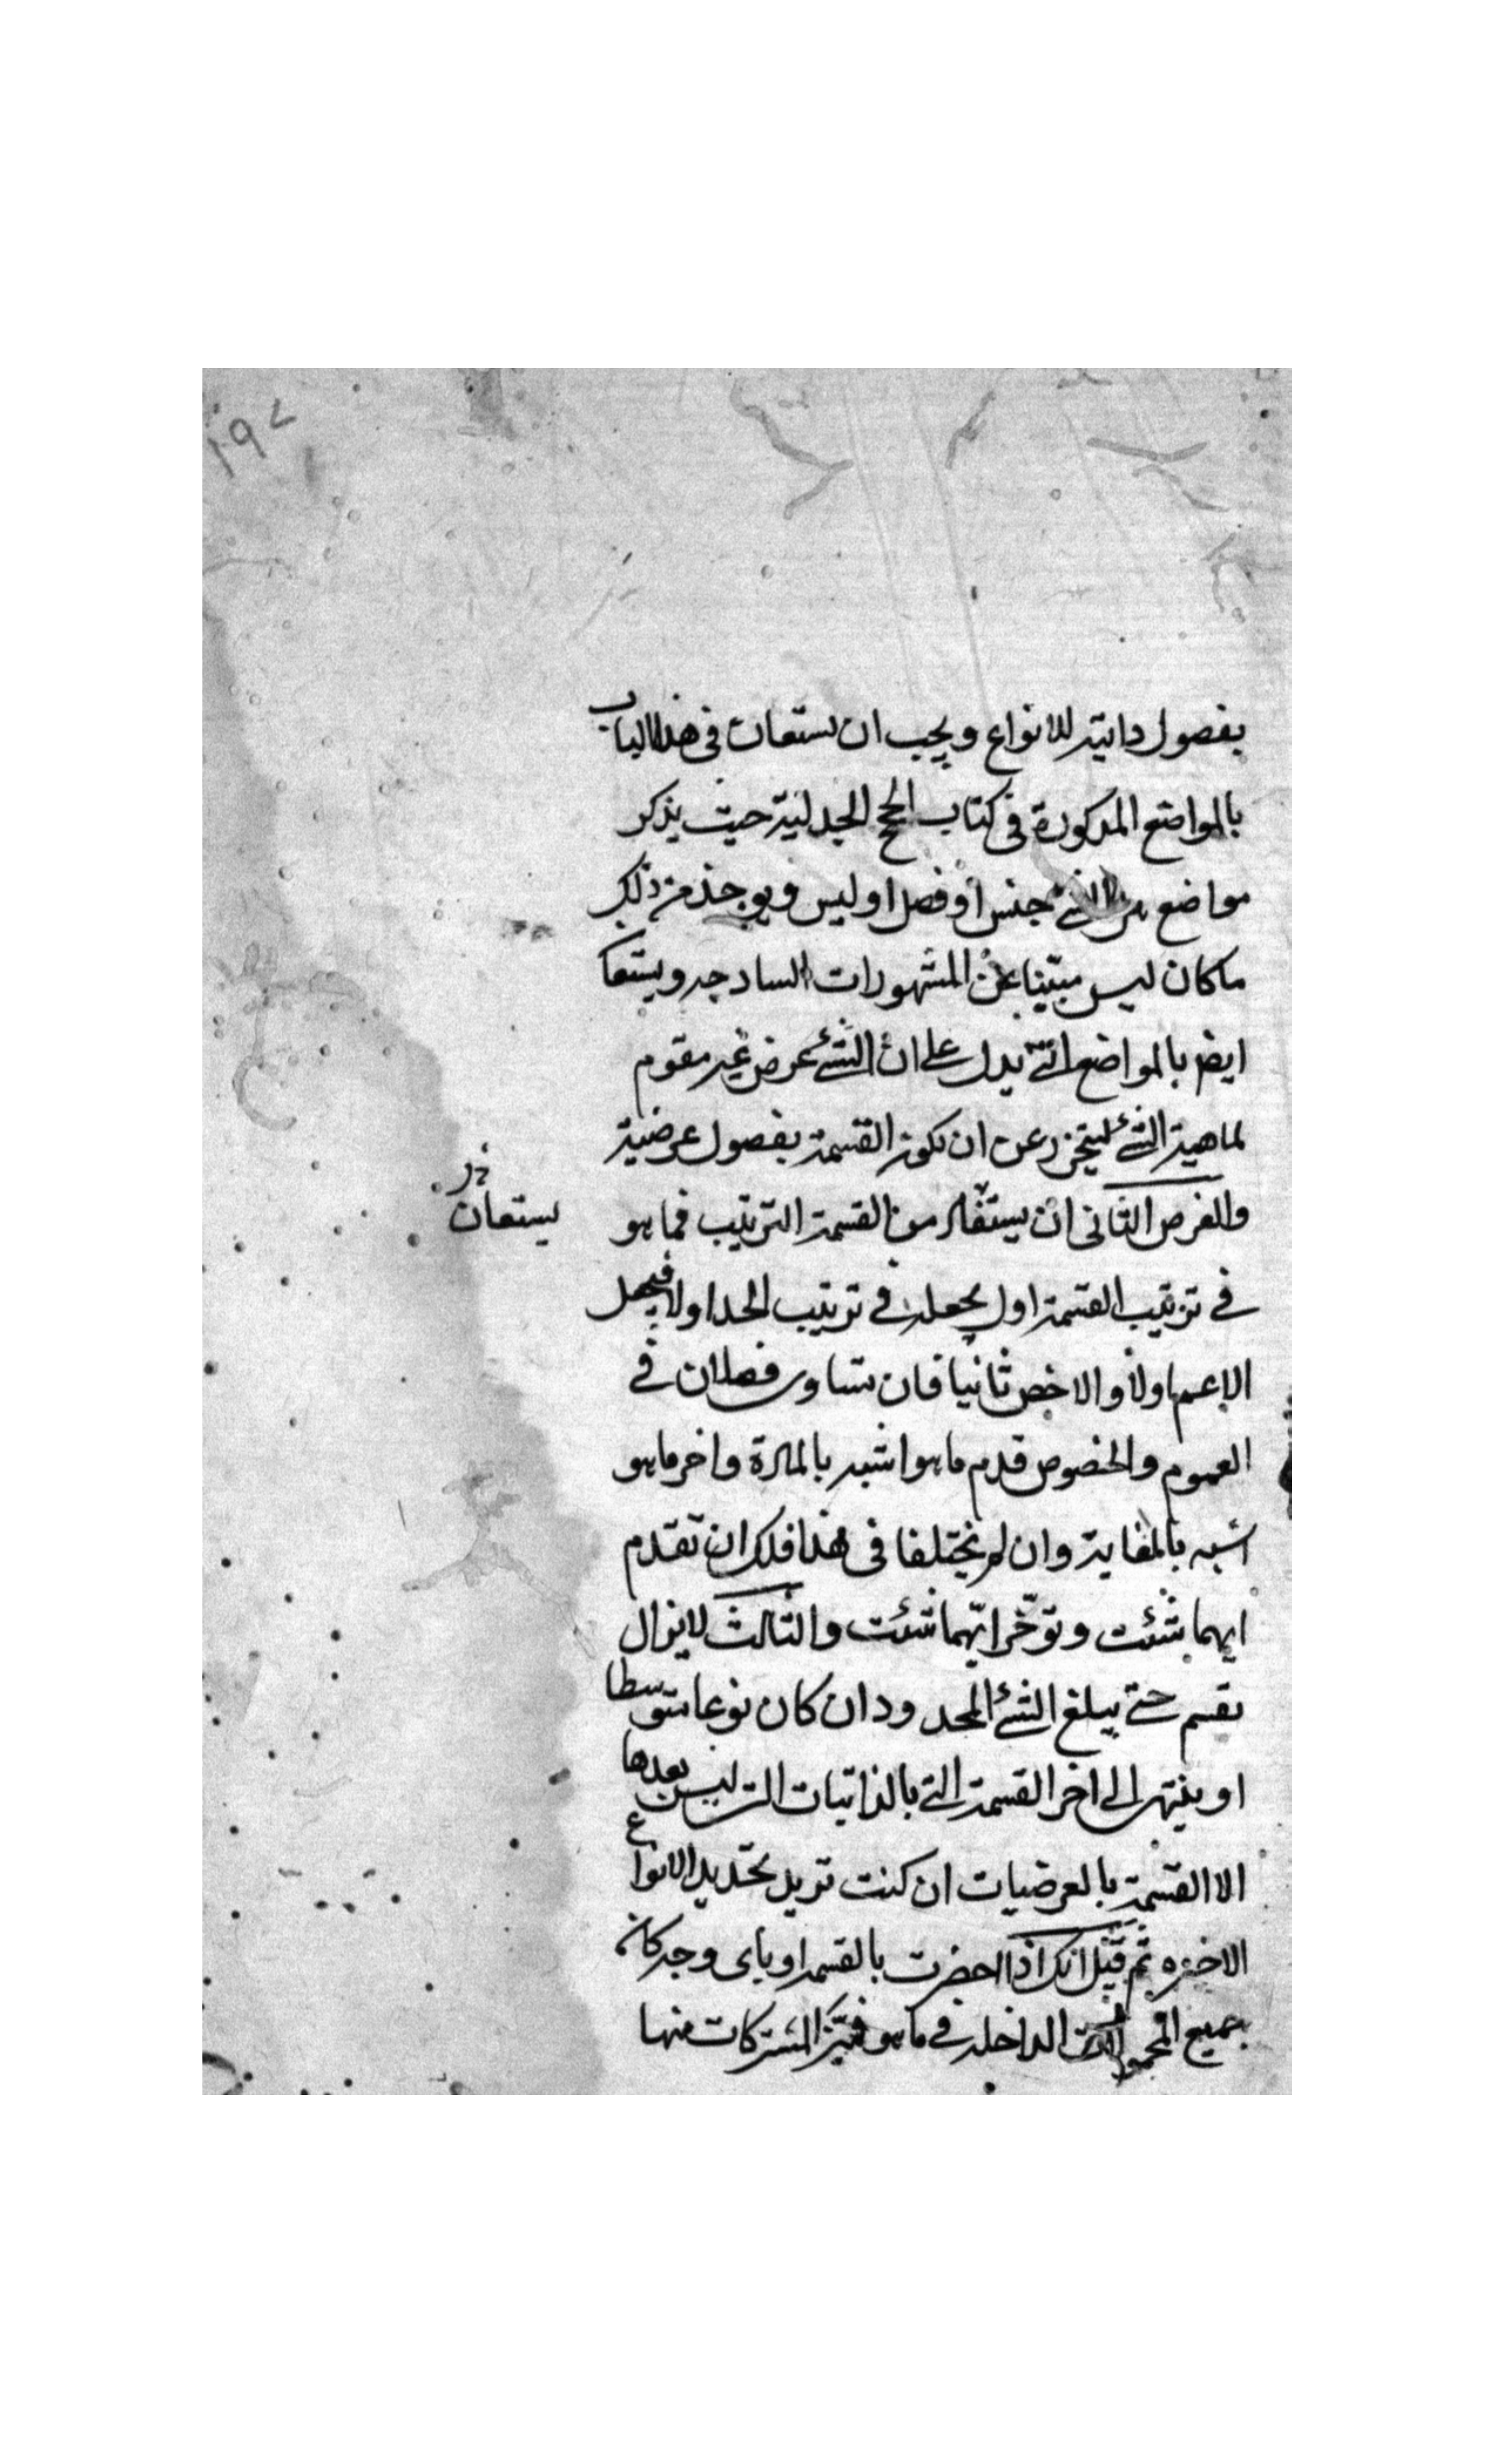 ١٩٧
بفصول داتية للانواع ويجب ان يستعان فى هذا الباب
بالمواضع المدكورة فى كتاب الحجج الجدلية حيث يذكر
مواضع هل الشئ جنس او فصل او ليس ويوجذ من ذلك
ما كان ليس مبنيا على المشهورات الساد جه ويستعا
ايضا بالمواضع التى يدل على ان الشئ عرض غير مقوم
لماهية الشئ ليتحرز عن ان تكون القسمة بفصول عرضية
والغرض الثانى ان يستفاد من القسمة الترتيب فما هو
يستعان
فى ترتيب القسمة اول يجعله فى ترتيب الحد اولا فيجعل
الاعم اولا والاخص ثانيا فان تساوى فصلان فى
العموم والخصوص قدم ما هو اشبه بالمادة واخر ما هو
اشبه بالغاية وان لم يختلفا فى هذا فلك ان تقدم
ايهما شئت وتؤخر ايّهما شئت والثالث لا يزال
يقسم حتى يبلغ الشئ المحدود ان كان نوعا متوسطا
او ينتهى الى اخر القسمة التى بالذاتيات التى ليس بعدها
الا القسمة بالعرضيات ان كنت تريد تحديد الانواع
الاخيره ثم قيل انك اذا احضرت بالقسمه او باى وجه كان
جميع المحمولات الداخله فى ما هو فميّز المشتركات منها